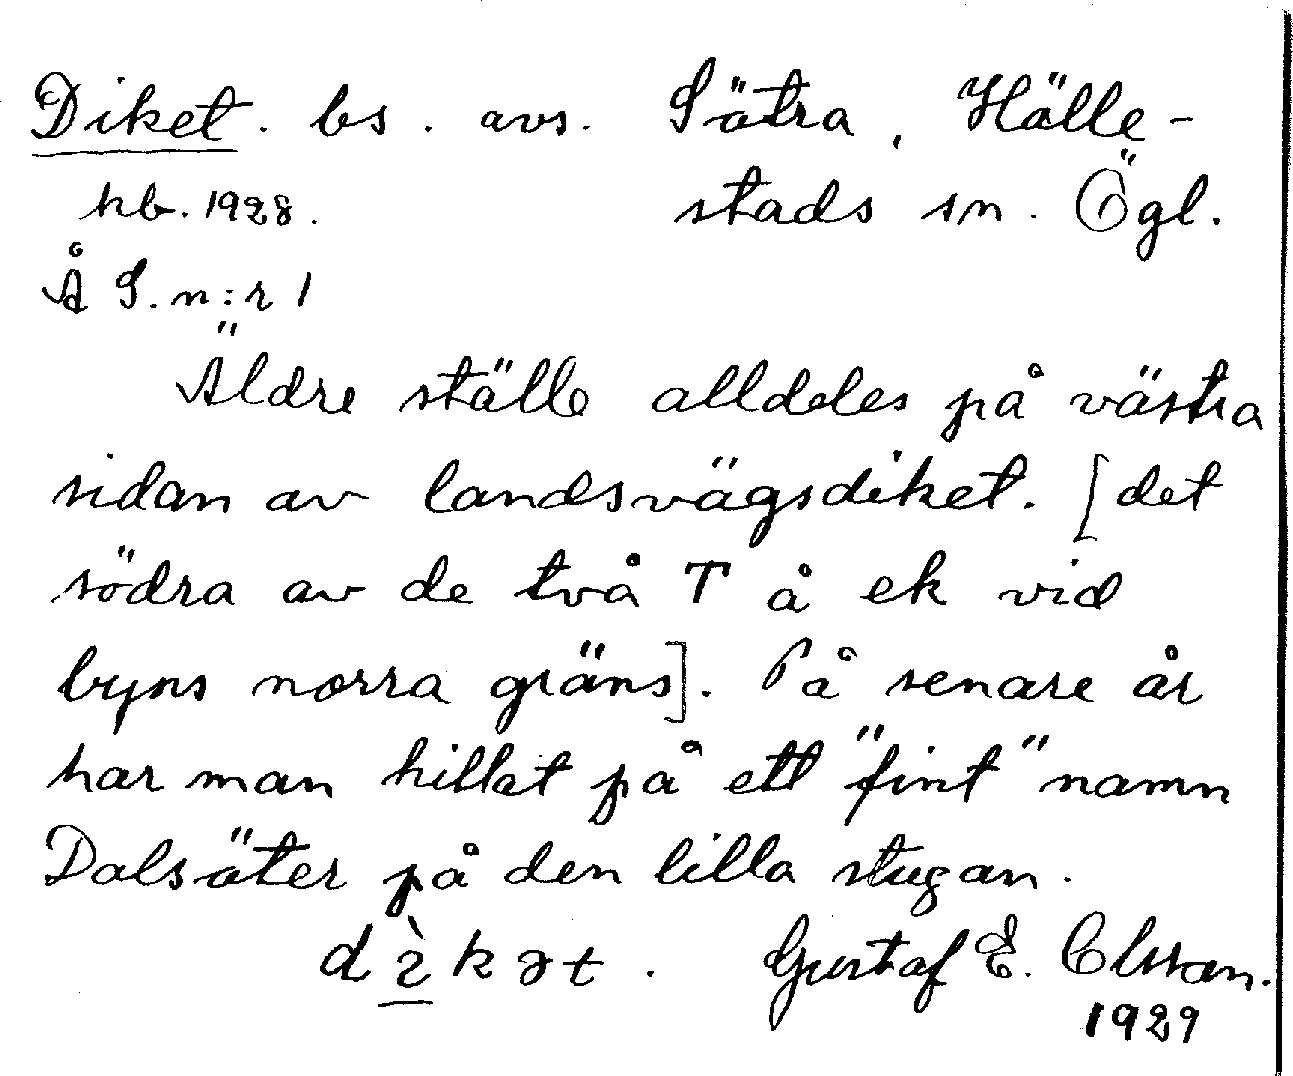 Diket. bs. avs. Sätra, Hälle-
hb. 1928. stads sn. Ögl.
Å S. n:r 1
Äldre ställe alldeles på västra
sidan av landsvägsdiket. [det
södra av de två T å ek vid
byns norra gräns]. På senare år
har man hittat på ett "fint" namn
Dalsäter på den lilla stugan.
Gustaf E. Olsson.
1929